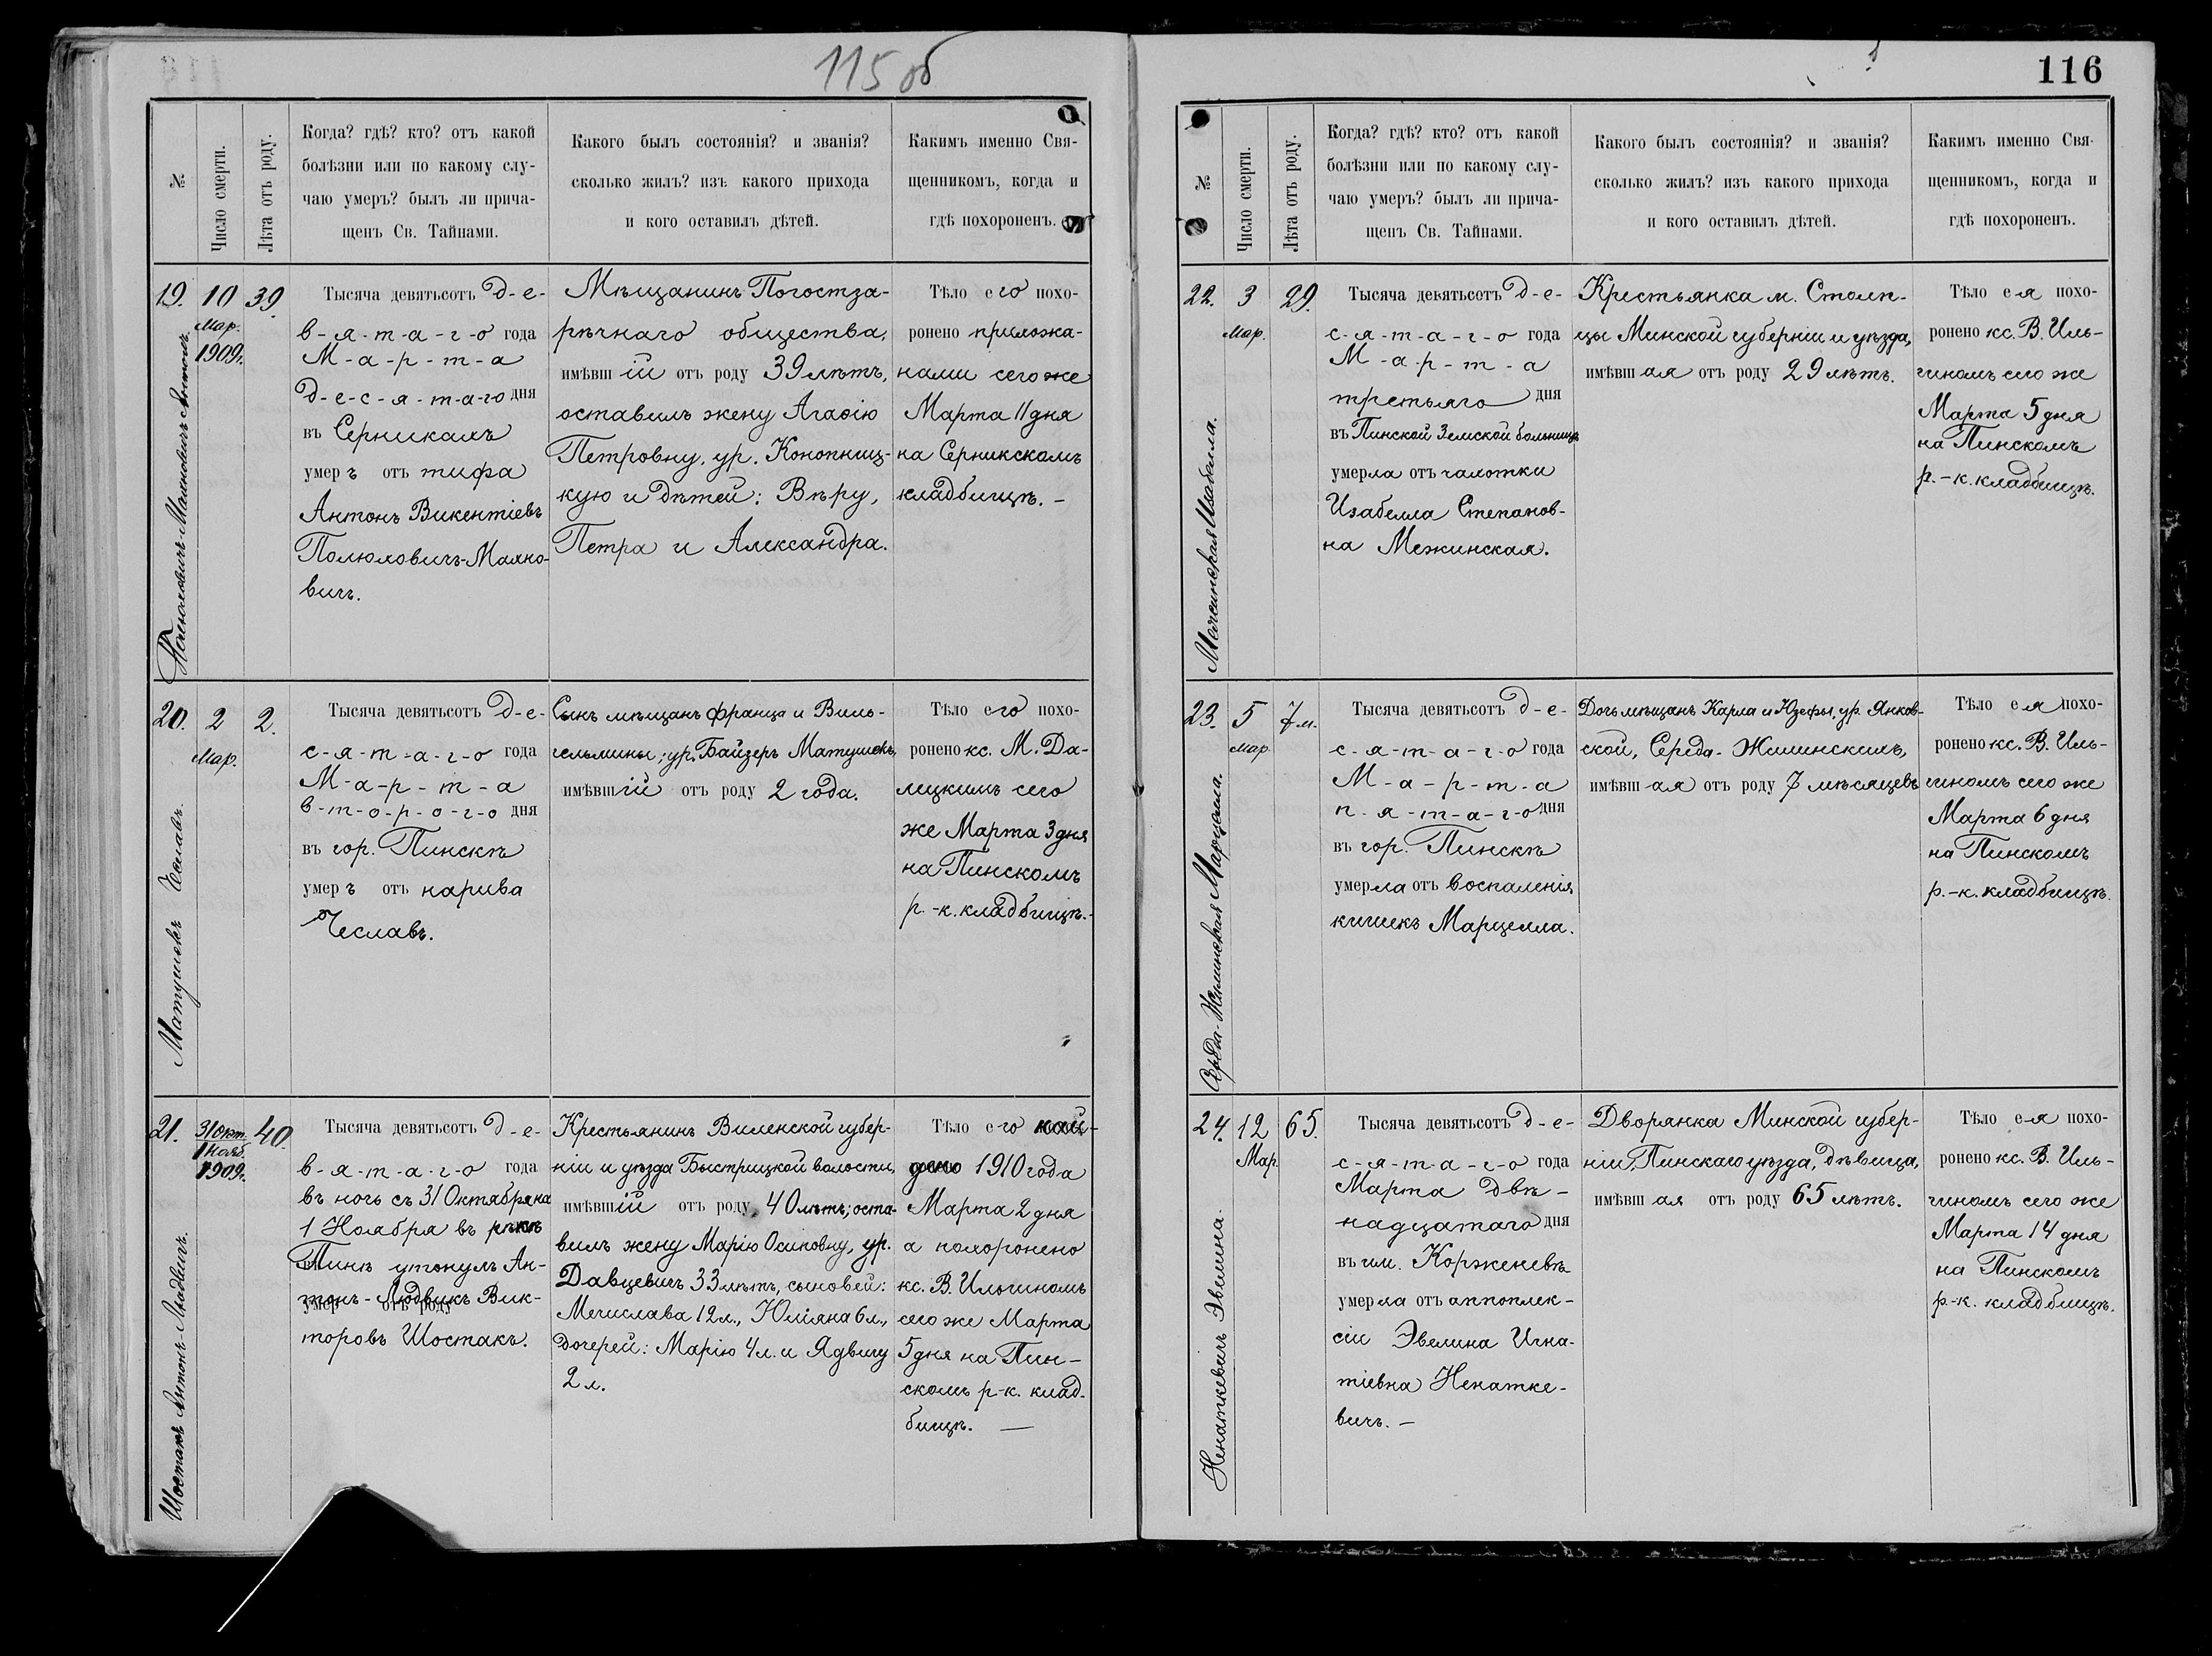 115 об
№
Число смерти.
Лѣта отъ роду.
Когда? гдѣ? кто? отъ какой
болѣзни или по какому слу-
чаю умеръ? былъ ли прича-
щенъ Св. Тайнами.
Какого былъ состоянія? и званія?
сколько жилъ? изъ какого прихода
и кого оставилъ дѣтей.
Какимъ именно Свя-
щенникомъ, когда и
гдѣ похороненъ.
19.
Маяновичъ Антонъ.
10
Мар.
1909г.
39.
Тысяча девятьсотъ д-е-
в-я-т-а-г-о года
М-а-р-т-а
д-е-с-я-т-а-го дня
въ Серникахъ
умеръ отъ тифа
Антонъ Викентіевъ
Полюловичъ-Маяно-
вичъ.
Мѣщанинъ Погостза-
рѣчнаго общества,
имѣвшій отъ роду 39 лѣтъ,
оставилъ жену Агаѳію
Петровну, ур. Конопниц-
кую и дѣтей: Вѣру,
Петра и Александра.
Тѣло его похо-
ронено прихожа-
нами сего же
Марта 11 дня
на Серникскомъ
кладбищѣ. –
20.
Матушекъ Чеславъ.
2
Мар.
2.
Тысяча девятьсотъ д-е-
с-я-т-а-г-о года
М-а-р-т-а
в-т-о-р-о-г-о дня
въ гор. Пинскѣ
умеръ отъ нарива
Чеславъ.
Сынъ мѣщанъ Франца и Виль-
гельмины, ур. Байзеръ Матушекъ,
имѣвшій отъ роду 2 года.
Тѣло его похо-
ронено кс. М. Да-
лецкимъ сего
же Марта 3 дня
на Пинскомъ
р.-к. кладбищѣ.-
21.
Шостакъ Антонъ-Людвикъ.
31 Окт.
1 Нояб.
1909г.
40.
Тысяча девятьсотъ д-е-
в-я-т-а-г-о года
въ ночь съ 31 Октября на
1 Ноября въ рѣкѣ
Пинѣ утонулъ Ан-
тонъ-Людвикъ Вик-
умер отъ роду
торовъ Шостакъ.
Крестьянинъ Виленской губер-
ніи и уѣзда Быстрицкой волости,
имѣвшій отъ роду 40 лѣтъ; оста-
вилъ жену Марію Осиповну, ур.
Давцевичъ 33 лѣтъ, сыновей:
Мечислава 12 л., Юліяна 6 л.,
дочерей: Марію 4 л. и Ядвигу
2 л.
Тѣло его най-
дено 1910 года
Марта 2 дня
а похоронено
кс. В. Ильгиномъ
сего же Марта
5 дня на Пин-
скомъ р-к. клад-
бищѣ. —
116
№
Число смерти.
Лѣта отъ роду.
Когда? гдѣ? кто? отъ какой
болѣзни или по какому слу-
чаю умеръ? былъ ли прича-
щенъ Св. Тайнами.
Какого былъ состоянія? и званія?
сколько жилъ? изъ какого прихода
и кого оставилъ дѣтей.
Какимъ именно Свя-
щенникомъ, когда и
гдѣ похороненъ.
22.
Изабелла.
3
Мар.
29.
Тысяча девятьсотъ д-е-
с-я-т-а-г-о года
М-а-р-т-а
третьяго дня
въ Пинской Земской больницѣ
умерла отъ чахотки
Изабелла Степанов-
на Межинская.
Крестьянка м. Столп-
цы Минской губерніи и уѣзда,
имѣвшая отъ роду 29 лѣтъ.
Тѣло ея похо-
ронено кс. В. Иль-
гиномъ сего же
Марта 5 дня
на Пинскомъ
р.-к. кладбищѣ.
23.
Середа-Жилинская Марцелла.
5
Мар.
7 м.
Тысяча девятьсотъ д-е-
с-я-т-а-г-о года
М-а-р-т-а
п-я-т-а-г-о дня
въ гор. Пинскѣ
умерла отъ воспаленія
кишекъ Марцелла.
Дочь мѣщанъ Карла и Юзефы, ур. Янков-
ской, Середа-Жилинскихъ,
имѣвшая отъ роду 7 мѣсяцевъ
Тѣло ея похо-
ронено кс. В. Иль-
гиномъ сего же
Марта 6 дня
на Пинскомъ
р.-к. кладбищѣ.
24.
Ненаткевичъ Эвелина.
12
Мар.
65.
Тысяча девятьсотъ д-е-
с-я-т-а-г-о года
Марта двѣ-
надцатаго дня
въ им. Корженевѣ
умерла отъ апоплек-
сіи Эвелина Игна-
тіевна Ненатке-
вичъ. –
Дворянка Минской губер-
ніи, Пинскаго уѣзда, дѣвица,
имѣвшая отъ роду 65 лѣтъ.
Тѣло ея похо-
ронено кс. В. Иль-
гиномъ сего же
Марта 14 дня
на Пинскомъ
р.-к. кладбищѣ.